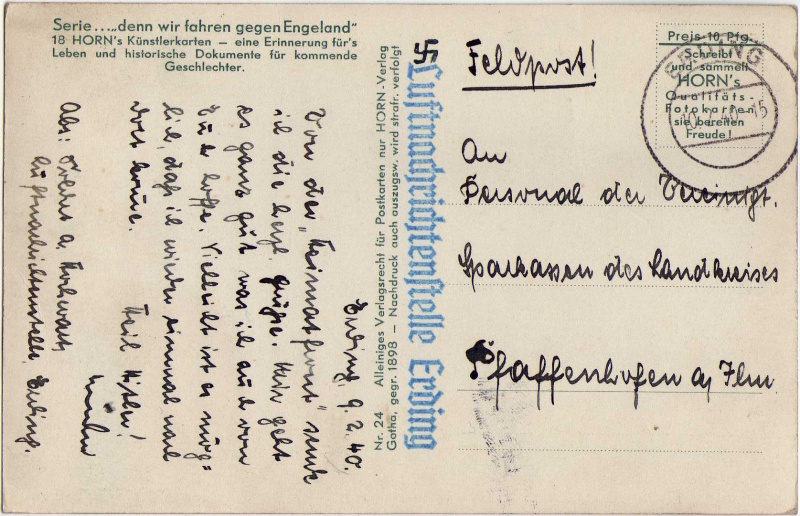 Serie ... „denn wir fahren gegen Engeland"
18 HORN's Künstlerkarten – eine Erinnerung für's
Leben und historische Dokumente für kommende
Geschlechter.
Erding, 9. 2. 40.
Von der „Heimatfront" sende
ich die herzl. Grüße. Mir geht
es ganz gut was ich auch von
Euch hoffe. Vielleicht ist es mög-
lich, daß ich wieder einmal nach
dort komme.
Heil Hitler!
Abs: a.
Luftnachrichtenstelle Erding.
Nr. 24 Alleiniges Verlagsrecht für Postkarten nur HORN-Verlag
Gotha, gegr. 1898 – Nachdruck auch auszugsw. wird strafr. verfolgt
卐 Luftnachrichtenstelle Erding
Feldpost!
Preis 10 Pfg.
Schreibt
und sammelt
HORN's
Qualitäts-
Fotokarten
sie bereiten
Freude!
ERDING
10.2.40.-15
An
Personal der Vereinigt.
Sparkassen des Landkreises
Pfaffenhofen a/ Ilm